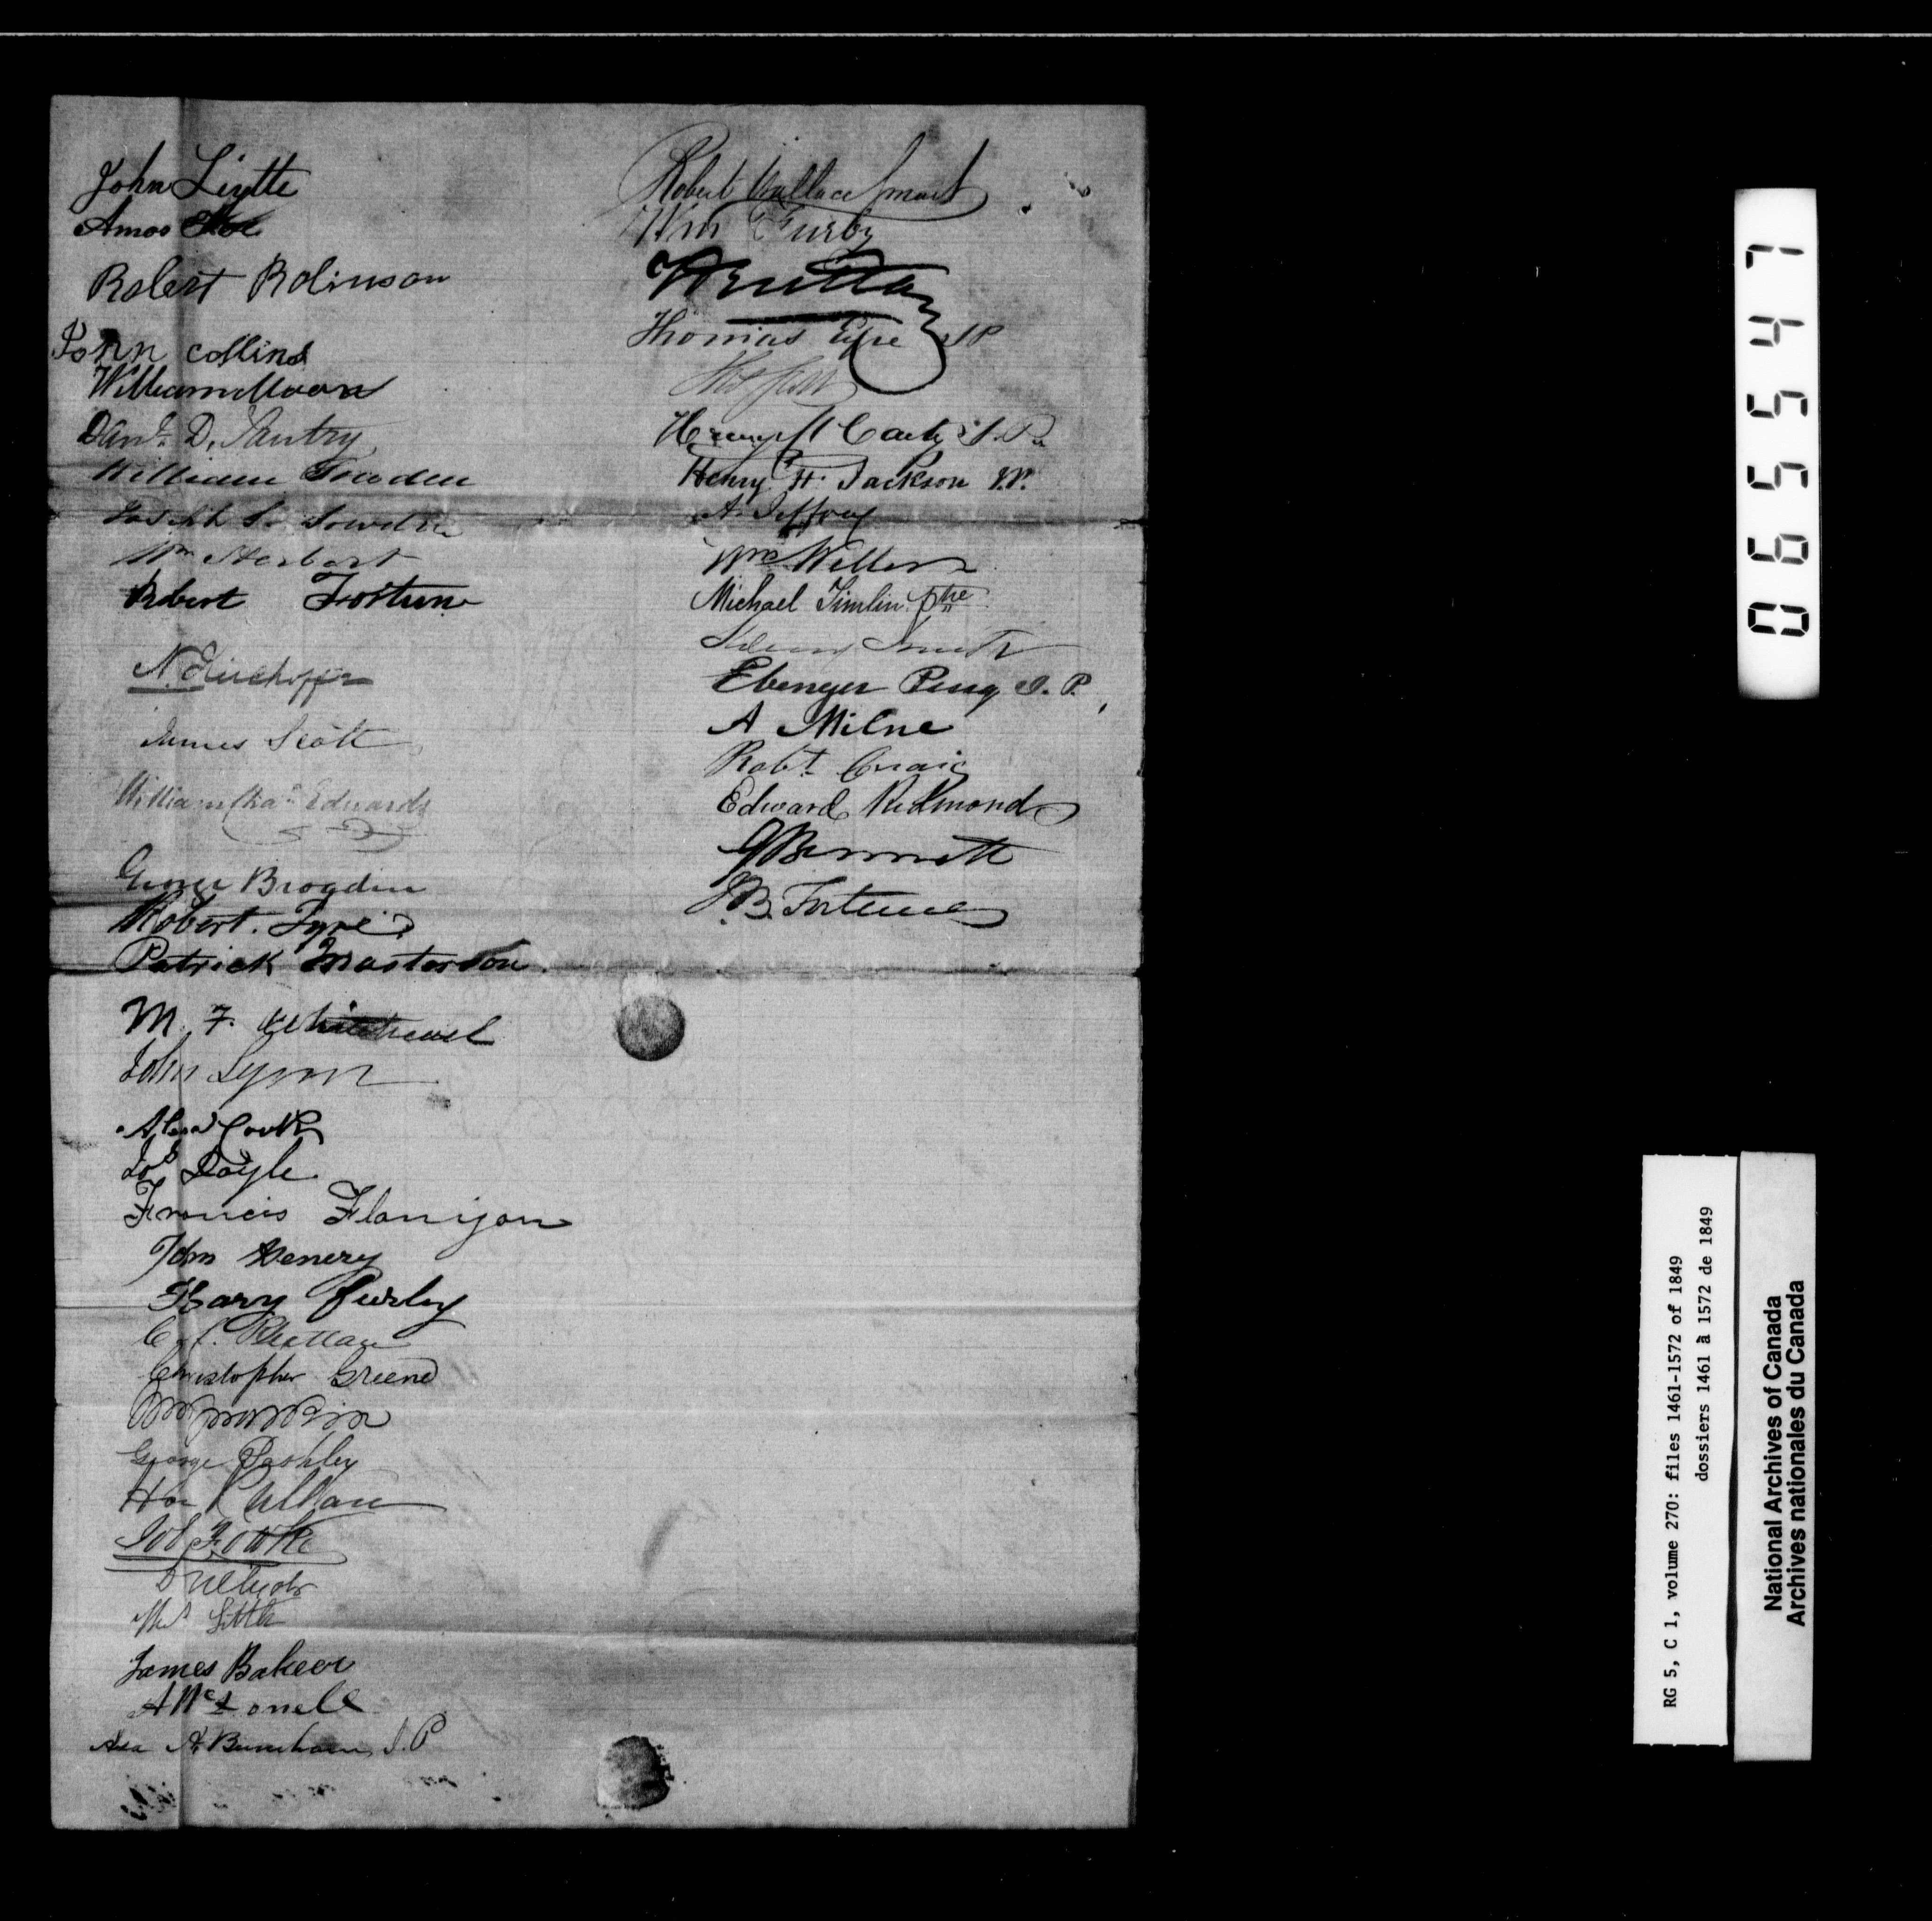 John Lyttle
Amos
Robert Robinson
John Collins
William Moore
Danl. D.
William Sowden
Joseph S. Sowden
Wm Herbert
Robert Fortune
N. Kirchoffer
James Scott
William Edwards
George Brogdin
Robert. Fyre
Patrick Masterson
M. F. Whitehead
John Lynn
Alexr Cook
Jos Doyle
Francis Flanigan
John Henery
Hary Furby
C. Ruttan
Christopher Greene
George Pashley
Fowke
Thos Little
James Baker
A McDonell
Asa A. Burnham, J.P
Robert Wallace Smart
Wm Furby
HRuttan
Thomas Eyre JP
J.P.
Henry H. Jackson J.P.
A. Jeffrey
Wm Weller
Michael Timlin Ptre
Smith
Ebenezer Perry J.P.
A Milne
Robt. Craig
Edward Redmond
Bennett
J.B. Fortune
065547
RG 5, C 1, volume 270: files 1461-1572 of 1849
dossiers 1461 à 1572 de 1849
National Archives of Canada
Archives nationales du Canada